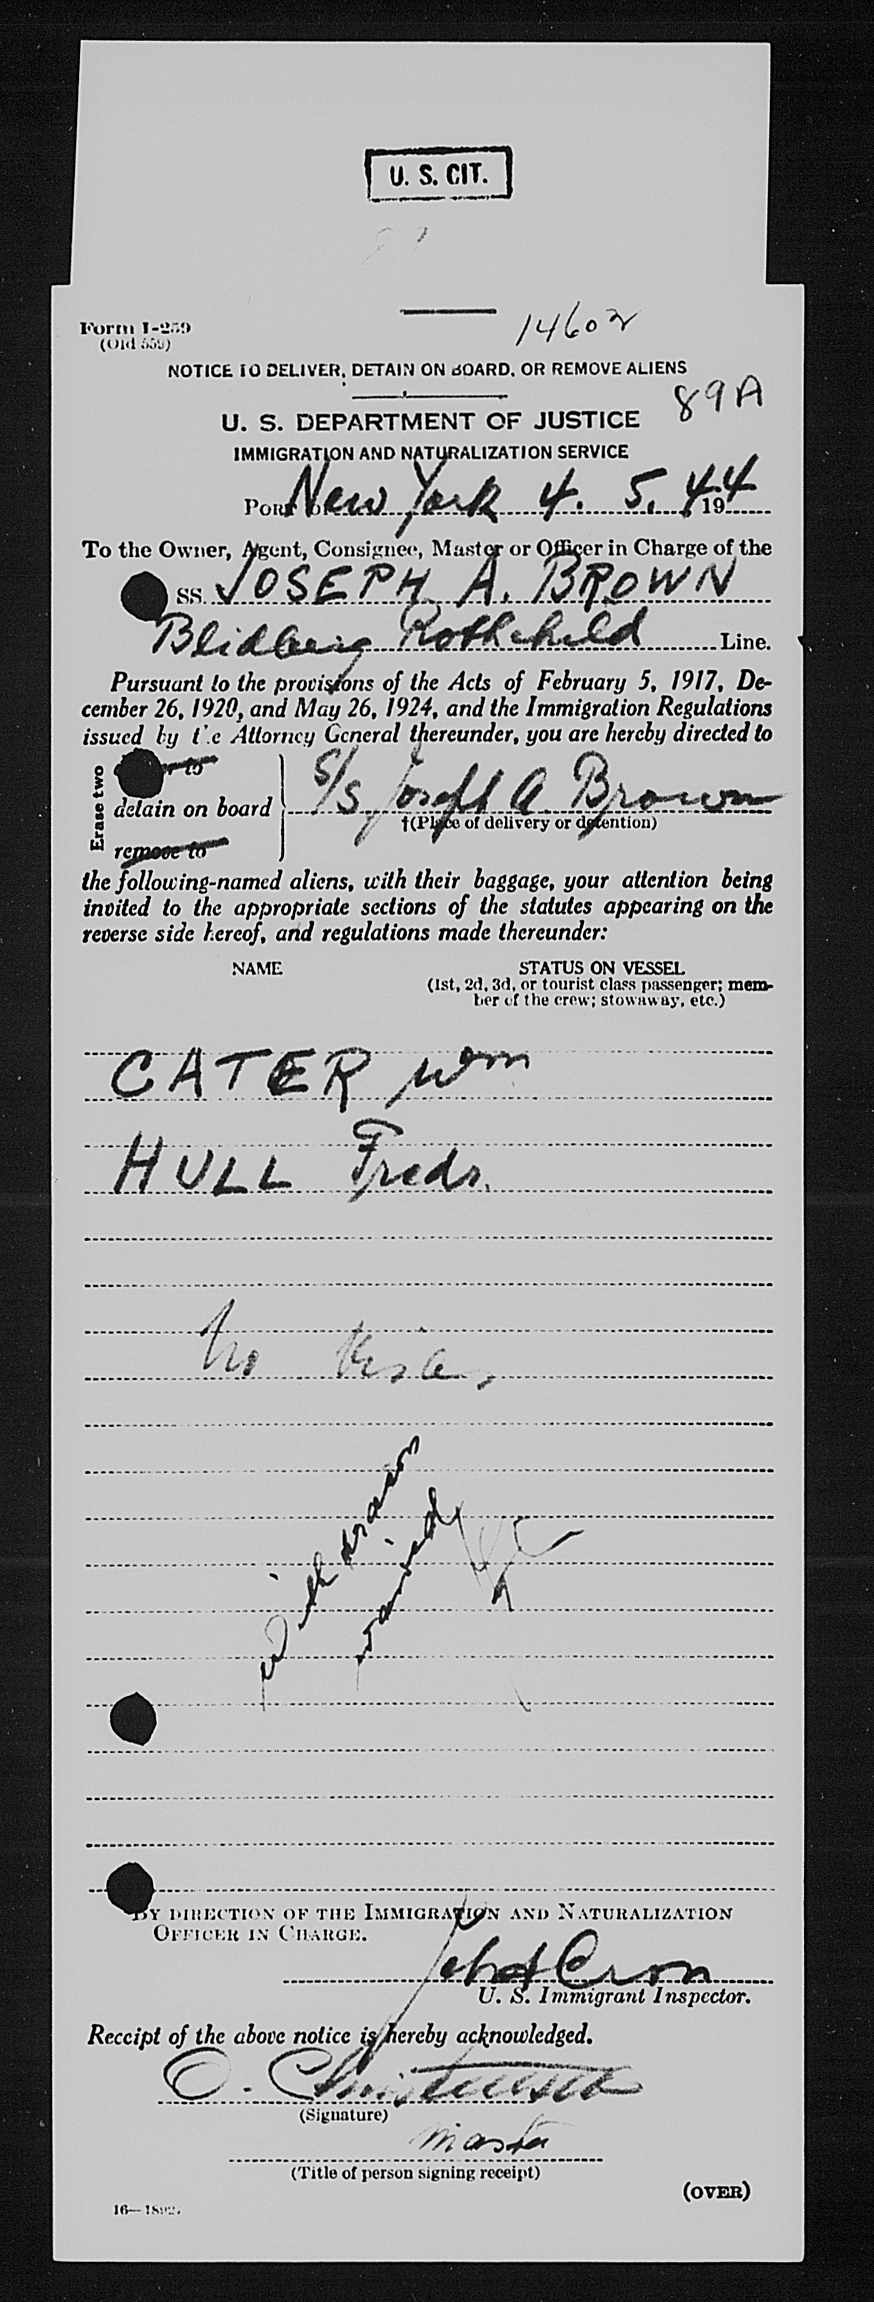 U. S. CIT.
14602
Form I-259
(Old 559)
NOTICE TO DELIVER, DETAIN ON BOARD, OR REMOVE ALIENS
89A
U. S. DEPARTMENT OF JUSTICE
IMMIGRATION AND NATURALIZATION SERVICE
Port of New York 4. 5. 1944
To the Owner, Agent, Consignee, Master or Officer in Charge of the
SS. JOSEPH A. BROWN
Blidberg Rothchild Line.
Pursuant to the provisions of the Acts of February 5, 1917, De-
cember 26, 1920, and May 26, 1924, and the Immigration Regulations
issued by the Attorney General thereunder, you are hereby directed to
Erase two
detain on board
remove to
S/S Joseph A Brown
†(Place of delivery or detention)
the following-named aliens, with their baggage, your attention being
invited to the appropriate sections of the statutes appearing on the
reverse side hereof, and regulations made thereunder:
NAME STATUS ON VESSEL
(1st, 2d, 3d, or tourist class passenger; mem-
ber of the crew; stowaway, etc.)
CATER Wm
HULL Fredr.
No visas
withdrawn
waived
By direction of the Immigration and Naturalization
Officer in Charge.
U. S. Immigrant Inspector.
Receipt of the above notice is hereby acknowledged.
O. Christensen
(Signature)
Master
(Title of person signing receipt)
(OVER)